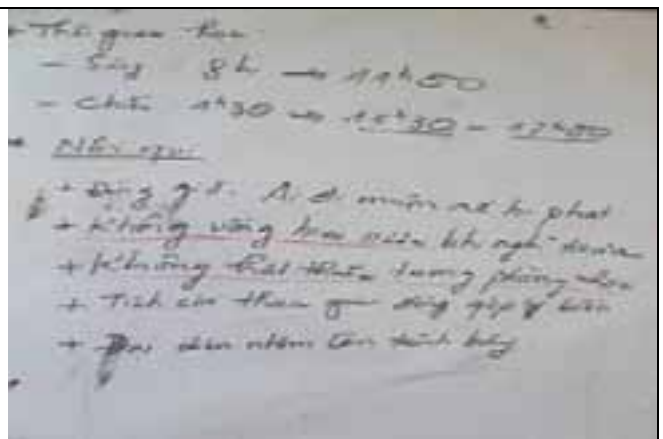 + Thời gian học
- Sáng 8h → 11h50
- Chiều 1h30 → 15h30 - 17h00
Nội qui
+ Đúng giờ. Ai đi muộn sẽ bị phạt
+ Không vắng học
+ Không hút thuốc trong phòng học
+ Tích cực tham gia đóng góp ý kiến
+ Đại diện nhóm lên trình bày